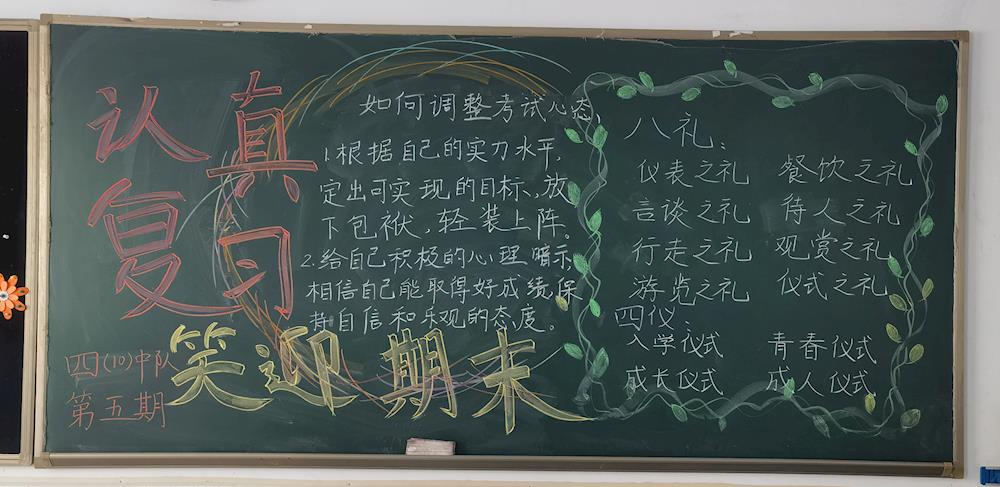 认真
复习
笑迎期末
四(10)中队
第五期
如何调整考试心态
1.根据自己的实力水平,
定出可实现的目标,放
下包袱,轻装上阵。
2.给自己积极的心理暗示,
相信自己能取得好成绩,保
持自信和乐观的态度。
八礼:
仪表之礼 餐饮之礼
言谈之礼 待人之礼
行走之礼 观赏之礼
游览之礼 仪式之礼
四仪
入学仪式 青春仪式
成长仪式 成人仪式